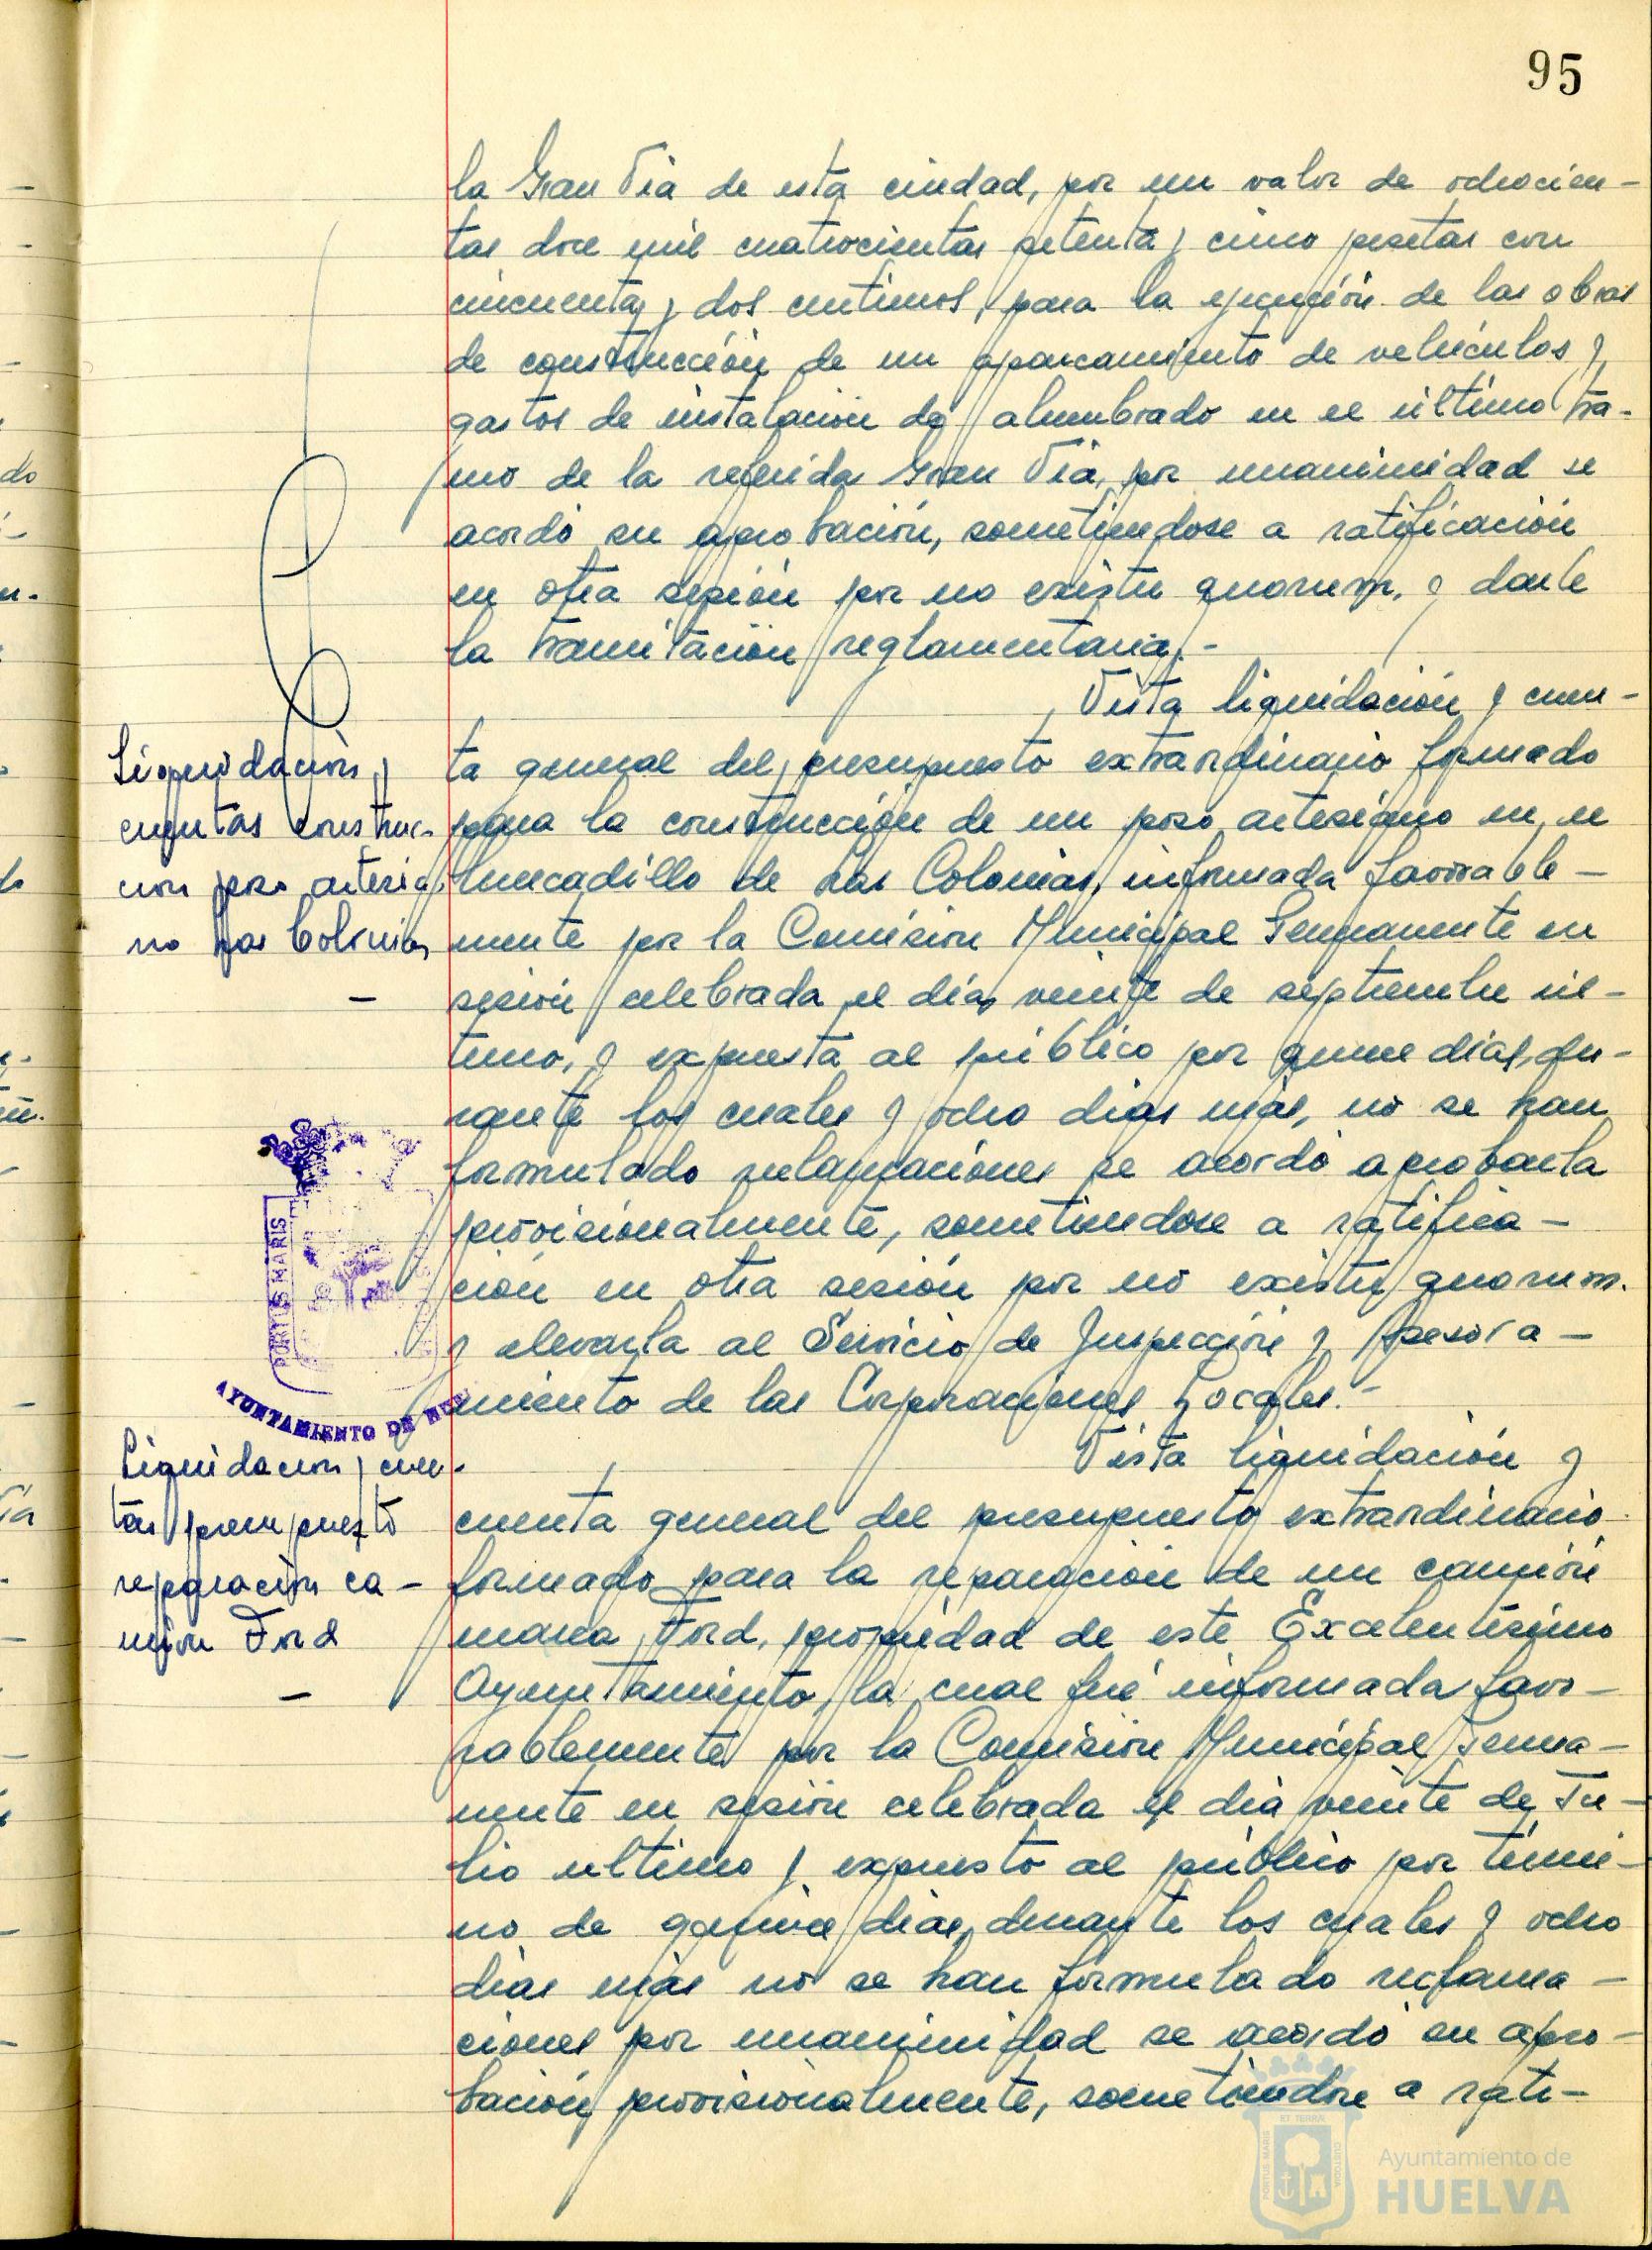 95
la Gran Via de esta ciudad, por un valor de ochocien-
tas doce mil cuatrocientas setenta y cinco pesetas con
cincuenta y dos centimos, para la ejecución de las obras
de construcción de un aparcamiento de vehículos y
gastos de instalación de alumbrado en el último tra-
mo de la referida Gran Via, por unanimidad se
acordó su aprobación, sometiendose a ratificación
en otra sesión por no existir quorum, y darle
la tramitación reglamentaria.-
Vista liquidación y cuen-
Liquidación y
cuentas construc-
cion pozo artesia
no Las Colonias
-
ta general del presupuesto extraordinario formado
para la construcción de un pozo artesiano en el
mercadillo de Las Colonias, informada favorable-
mente por la Comisión Municipal Permanente en
sesión celebrada el día veinte de septiembre úl-
timo, y expuesta al público por quince días, du-
rante los cuales y ocho días más, no se han
formulado reclamaciones se acordó aprobarla
provisionalmente, sometiendose a ratifica-
ción en otra sesión por no existir quorum.
y elevarla al Servicio de Inspección y Asesora-
miento de las Corporaciones Locales.-
PORTUS MARIS
AYUNTAMIENTO DE HUE
Vista liquidación y
Liquidacion y cuen-
tas presupuesto
reparación ca-
mión Ford
-
cuenta general del presupuesto extraordinario
formado para la reparación de un camión
marca Ford, propiedad de este Excelentísimo
Ayuntamiento, la cual fué informada favo-
rablemente por la Comisión Municipal Perma-
nente en sesión celebrada el día veinte de Ju-
lio ultimo y expuesto al público por térmi-
no de quince días, durante los cuales y ocho
días más no se han formulado reclama-
ciones por unanimidad se acordó su apro-
bación provisionalmente, sometiendose a rati-
PORTUS MARIS
ET TERRA
CUSTODIA
Ayuntamiento de
HUELVA